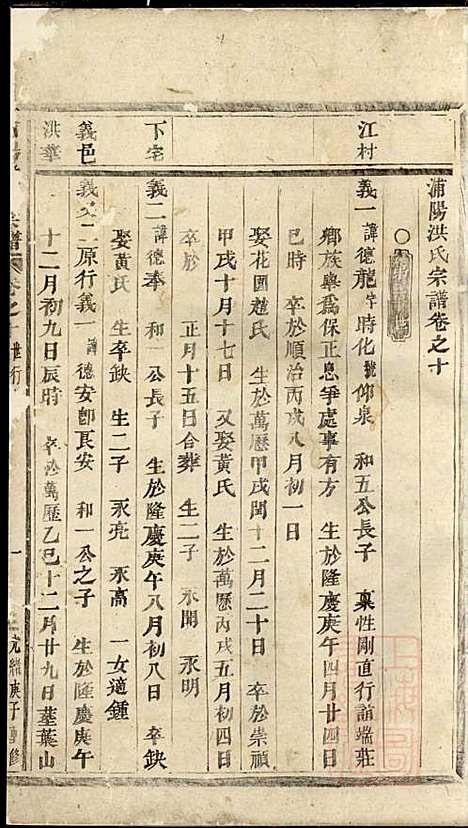 浦陽洪氏宗譜卷之十
江村
義一 諱德龍字時化號仰泉 和五公長子 稟性剛直行誼端莊
鄉族舉爲保正息爭處事有方 生於隆慶庚午四月廿四日
巳時 卒於順治丙戌八月初一日
娶花園趙氏 生於萬歷甲戌閏十二月二十日 卒於崇禎
甲戌十月十七日 又娶黃氏 生於萬歷丙戌五月初四日
卒於 正月十五日合葬 生二子 永開 永明
下宅
義二 諱德奉 和一公長子 生於隆慶庚午八月初八日 卒缺
娶黃氏 生卒缺 生二子 永亮 永高 一女適鍾
義邑
洪華
義又二原行義一 諱德安卽長安 和一公之子 生於隆慶庚午
十二月初九日辰時 卒於萬歷乙巳十二月廿九日 塟葉山
宗譜 卷之十 世行
一
光緒庚子重修